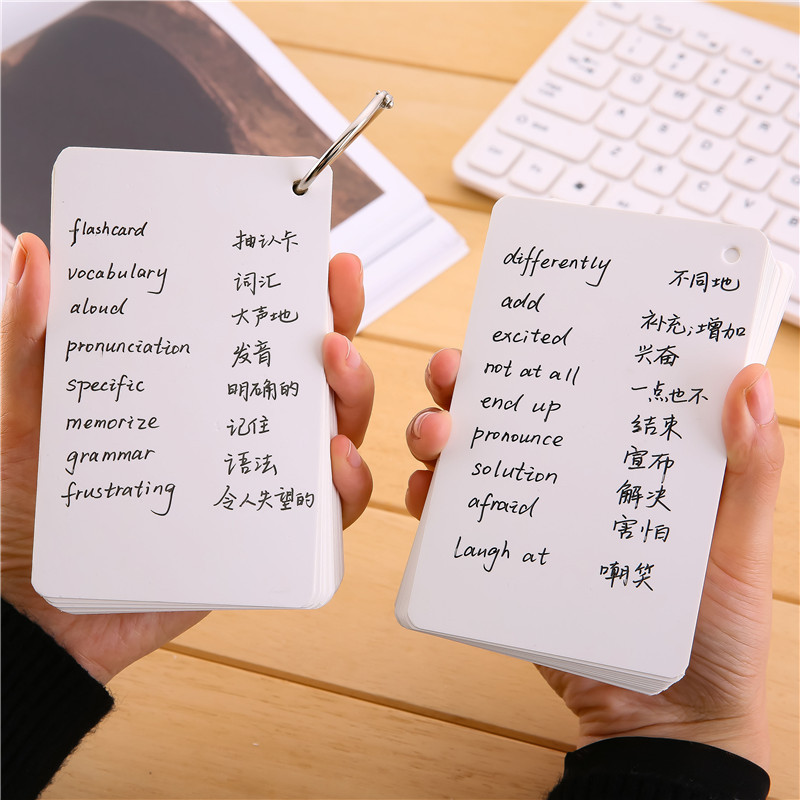 flashcard 抽认卡
vocabulary 词汇
aloud 大声地
pronunciation 发音
specific 明确的
memorize 记住
grammar 语法
frustrating 令人失望的
differently 不同地
add 补充;增加
excited 兴奋
not at all 一点也不
end up 结束
pronounce 宣布
solution 解决
afraid 害怕
Laugh at 嘲笑